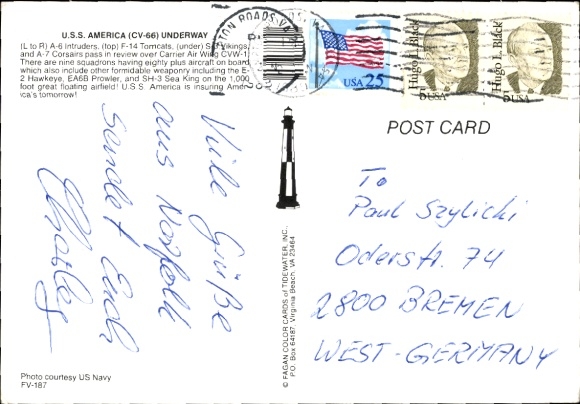 U.S.S. AMERICA (CV-66) UNDERWAY
(L to R) A-6 Intruders, (top) F-14 Tomcats, (under) S-3 Vikings,
and A-7 Corsairs pass in review over Carrier Air Wing CVW-1.
There are nine squadrons having eighty plus aircraft on board
which also include other formidable weaponry including the E-
2 Hawkeye, EA6B Prowler, and SH-3 Sea King on the 1,000
foot great floating airfield! U.S.S. America is insuring Amer-
ica's tomorrow!
TON ROADS VA
USA 25
Hugo L. Black
5 USA
Hugo L. Black
5 USA
POST CARD
Viele Grüße
aus Norfolk
sendet Euch
Charley
To
Paul Szylicki
Oderstr. 74
2800 BREMEN
WEST-GERMANY
© FAGAN COLOR CARDS of TIDEWATER, INC.
P.O. Box 64187, Virginia Beach, VA 23464
Photo courtesy US Navy
FV-187